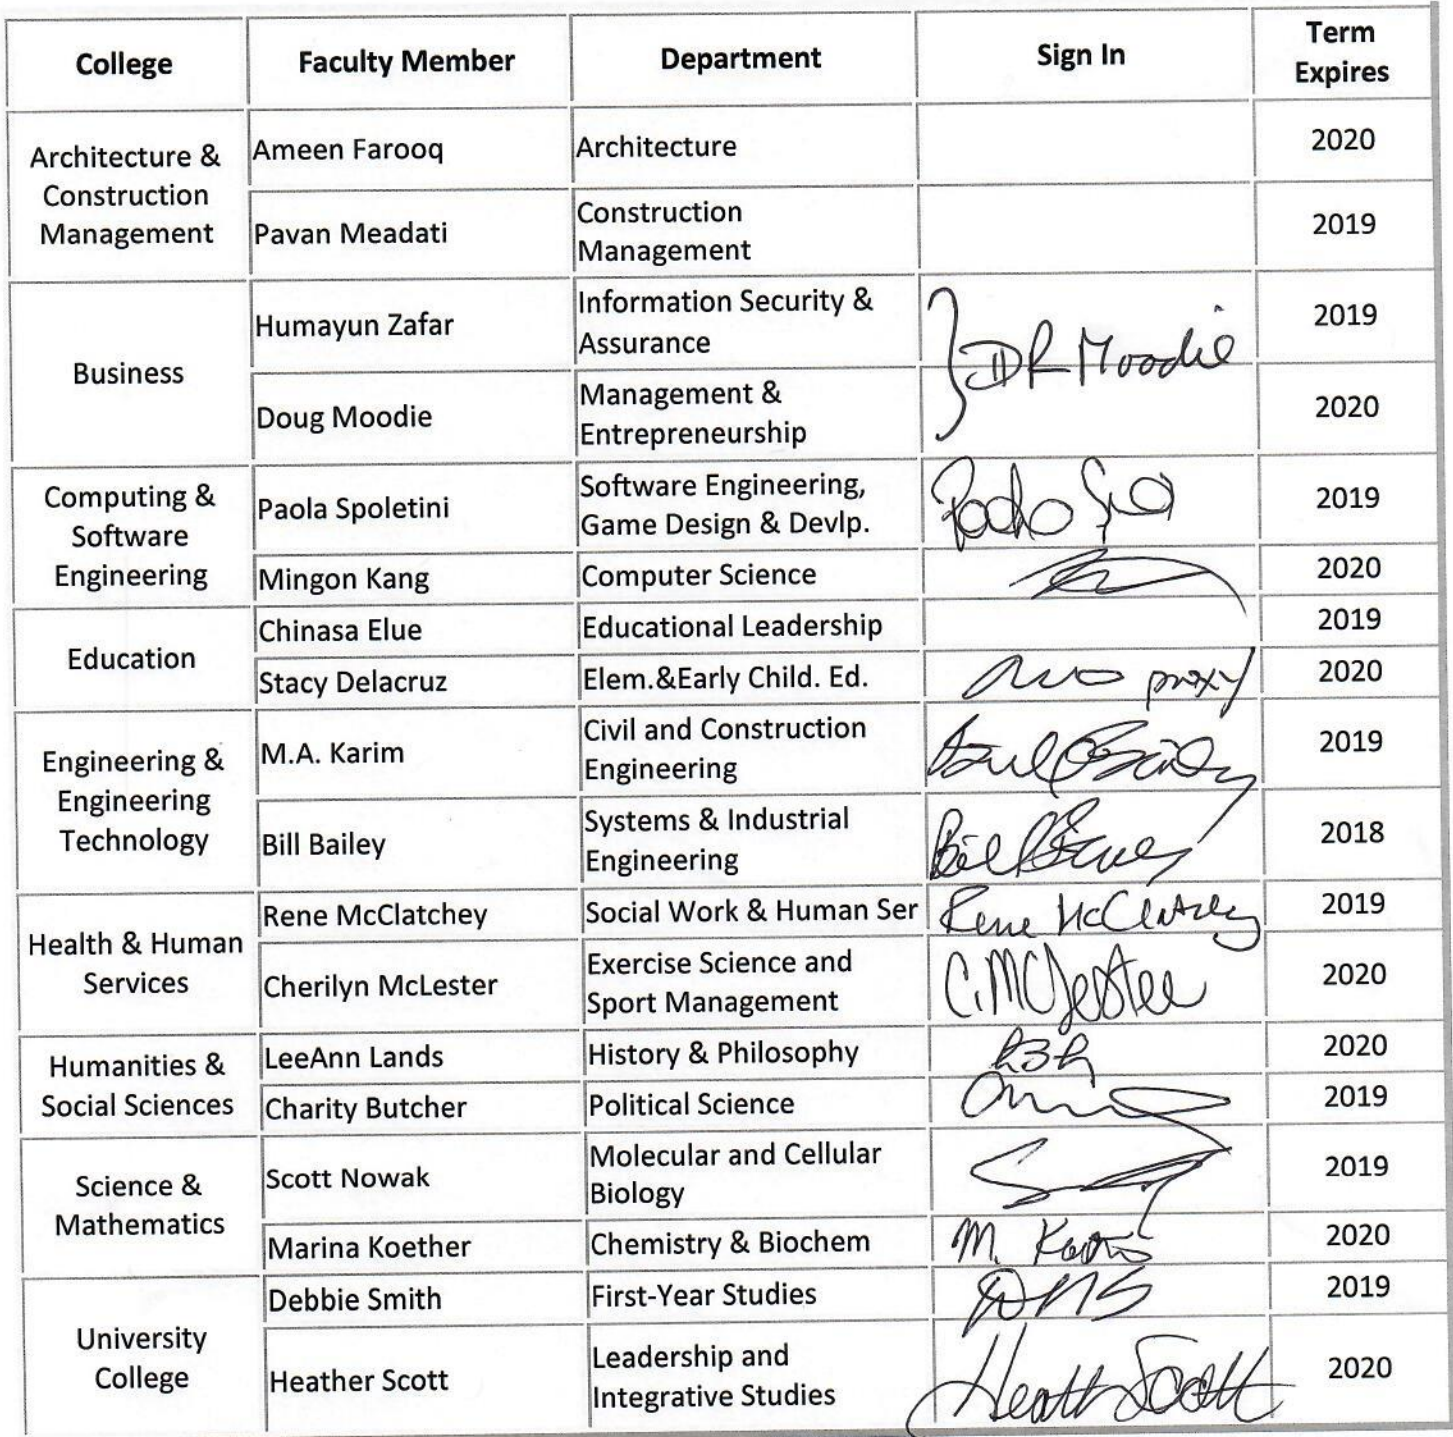 College Faculty Member Department Sign In Term Expires
Architecture & Construction Management
Ameen Farooq Architecture 2020
Pavan Meadati Construction Management 2019
Business
Humayun Zafar Information Security & Assurance 2019
DR Moodie
Doug Moodie Management & Entrepreneurship 2020
Computing & Software Engineering
Paola Spoletini Software Engineering, Game Design & Devlp. 2019
Mingon Kang Computer Science 2020
Education
Chinasa Elue Educational Leadership 2019
Stacy Delacruz Elem.&Early Child. Ed. proxy 2020
Engineering & Engineering Technology
M.A. Karim Civil and Construction Engineering 2019
Bill Bailey Systems & Industrial Engineering Bill Bailey 2018
Health & Human Services
Rene McClatchey Social Work & Human Ser Rene McClatchey 2019
Cherilyn McLester Exercise Science and Sport Management C. McLester 2020
Humanities & Social Sciences
LeeAnn Lands History & Philosophy 2020
Charity Butcher Political Science 2019
Science & Mathematics
Scott Nowak Molecular and Cellular Biology 2019
Marina Koether Chemistry & Biochem M. 2020
University College
Debbie Smith First-Year Studies DMS 2019
Heather Scott Leadership and Integrative Studies Heather Scott 2020